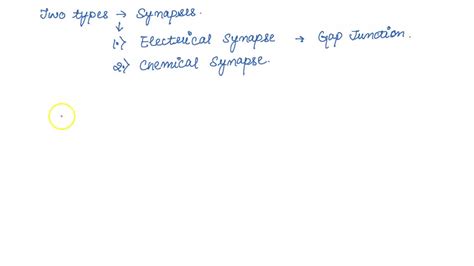 Two types → Synapses.
↓
1.) Electerical Synapse → Gap Junction.
2.) Chemical Synapse.